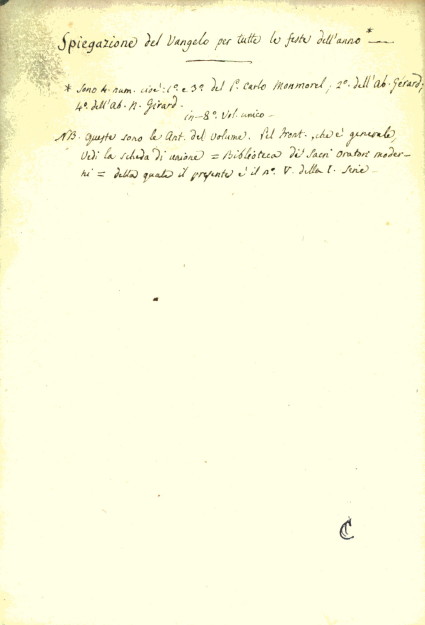 Spiegazione del Vangelo per tutte le feste dell'anno *
* Sono 4. num. cioè: 1º e 3º del P. Carlo Monmorel; 2º. dell'Ab. Gérard;
4º. dell'Ab. N. Girard.
in-8º. vol. unico.
NB. Queste sono le Ant. del volume. Pel Front., che è generale,
vedi la scheda di unione = Biblioteca de' Sacri Oratori moder-
ni = della quale il presente è il nº. V. della I. serie
C